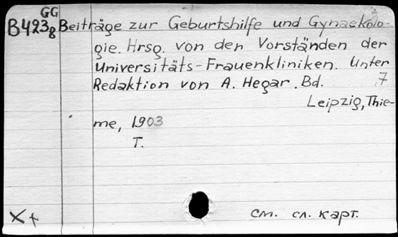 GG
B423g Beiträge zur Geburtshilfe und Gynaekolo-
gie. Hrsg. von den Vorständen der
Universitäts-Frauenkliniken. Unter
Redaktion von A. Hegar. Bd. 7
Leipzig, Thie-
me, 1903
T.
X+ см. сл. карт.